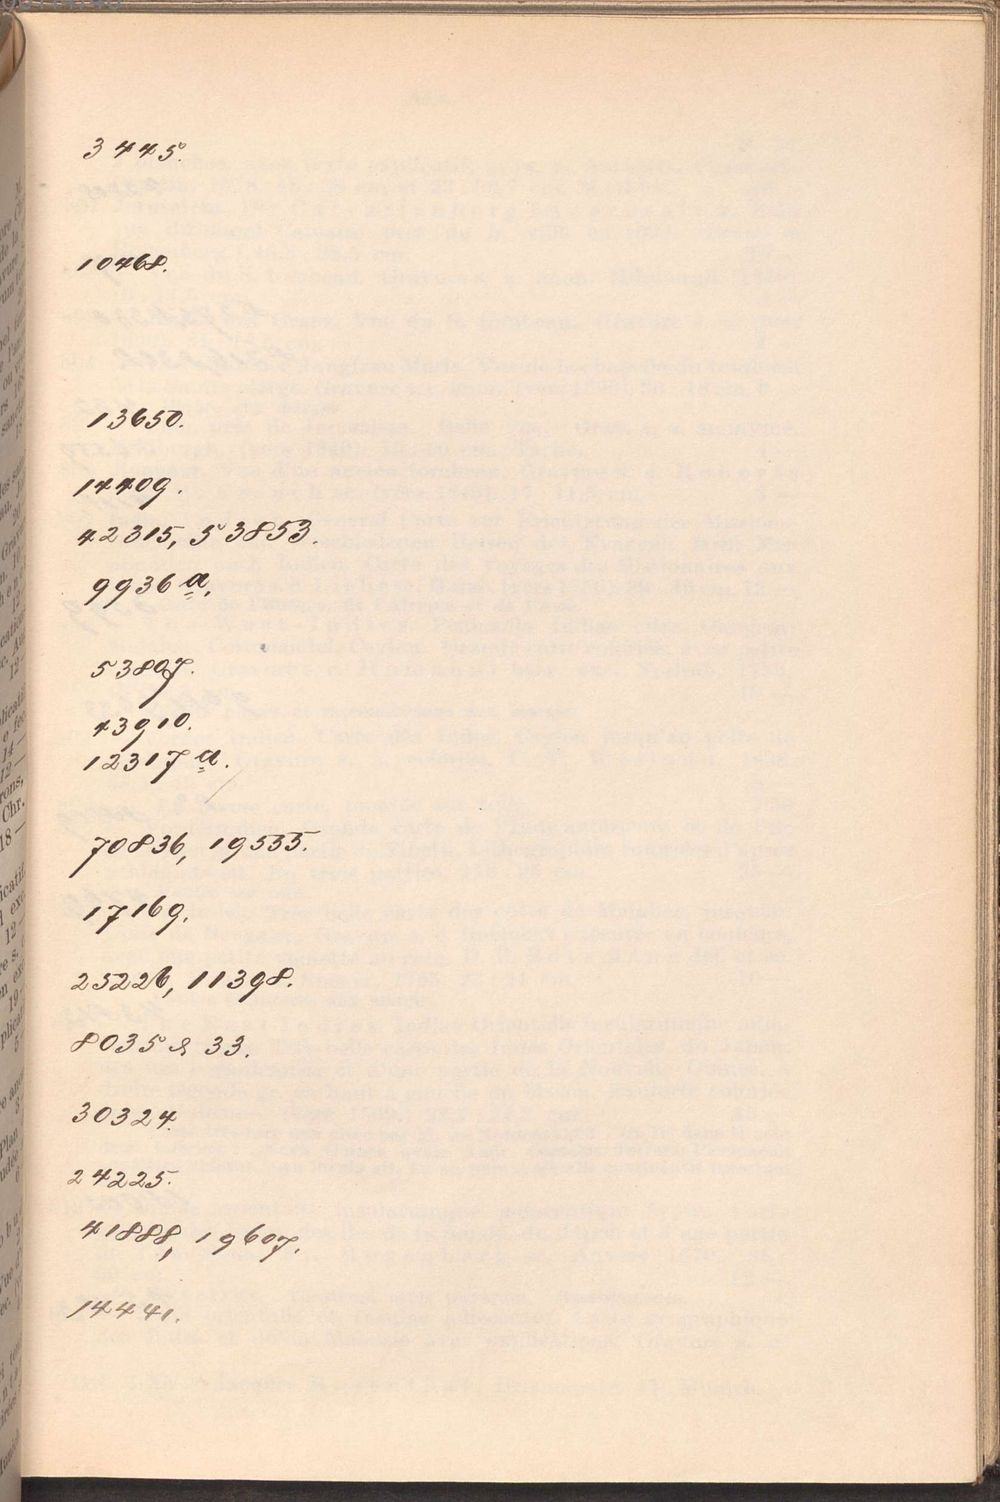 3445.
10468.
13650.
14409.
42315, 53853.
9936 a.
53897.
43910.
12317 a.
70836, 19535.
17169.
25226, 11398.
8035 & 33.
30324.
24225.
41888, 19607.
14441.